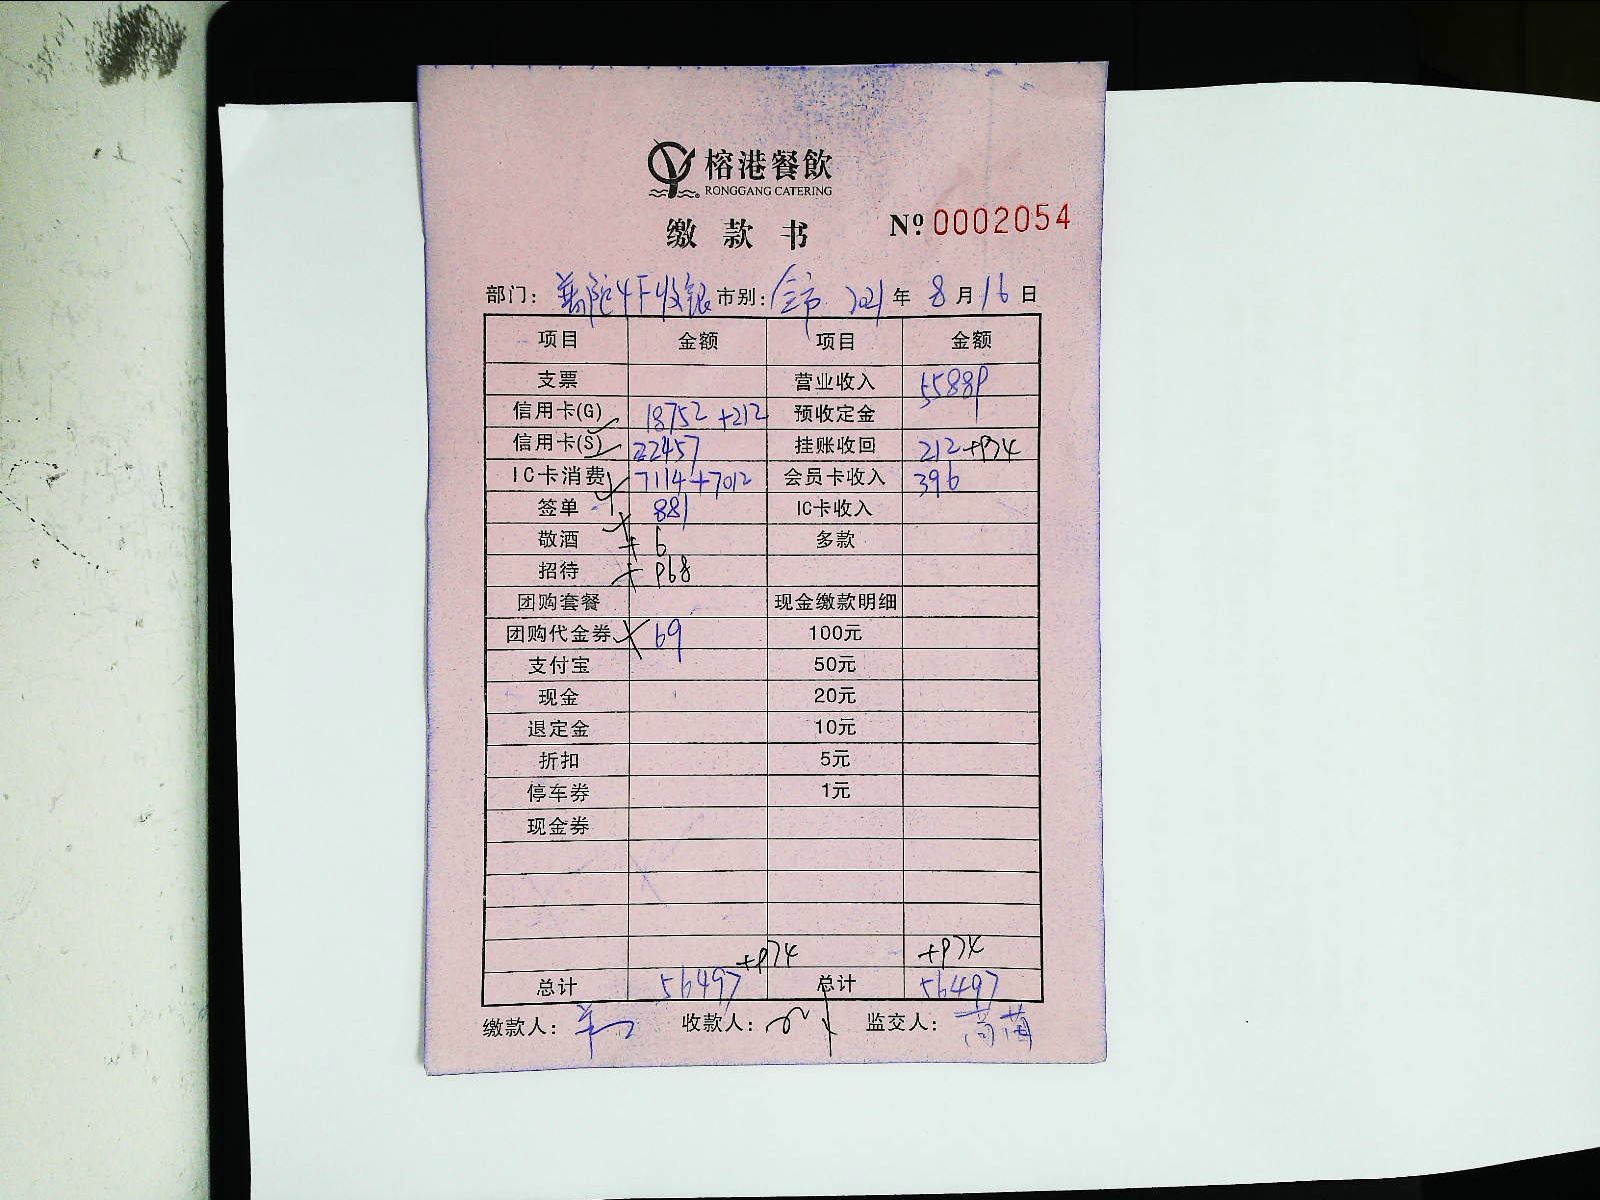 榕港餐飲
RONGGANG CATERING
缴款书 Nº 0002054
部门：普陀4F收银 市别：全市 2021年8月16日
项目 金额 项目 金额
支票 营业收入 55889
信用卡(G) 18752+212 预收定金
信用卡(S) 22457 挂账收回 212+974
IC卡消费 7114+7012 会员卡收入 396
签单 881 IC卡收入
敬酒 +6 多款
招待 +968
团购套餐 现金缴款明细
团购代金券 69 100元
支付宝 50元
现金 20元
退定金 10元
折扣 5元
停车券 1元
现金券
+974 +974
总计 56497 总计 56497
缴款人： 收款人： 监交人：